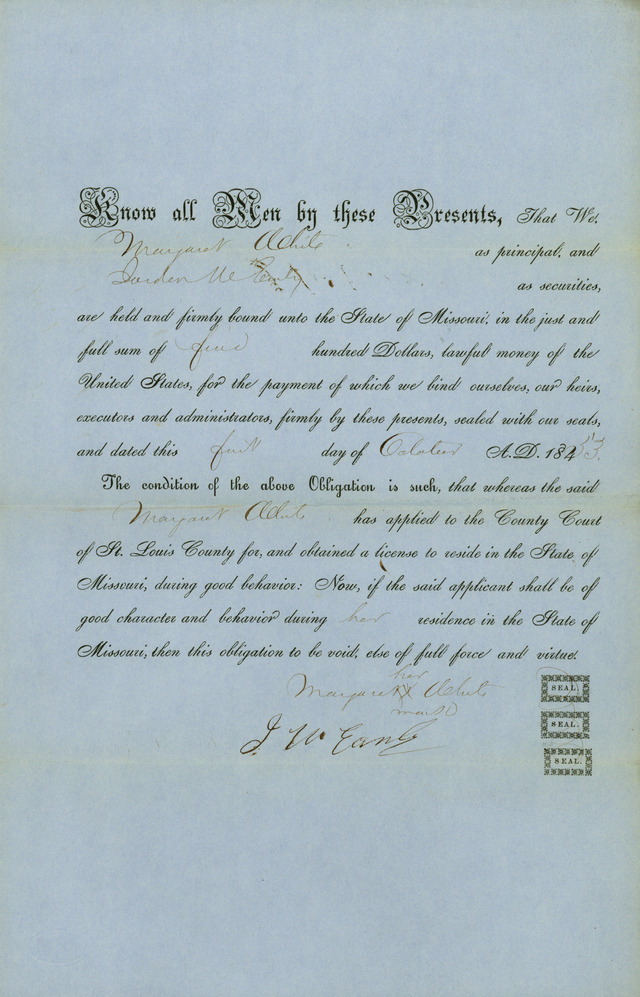 Know all Men by these Presents, That We,
Margaret White as principal, and
as securities,
are held and firmly bound unto the State of Missouri, in the just and
full sum of five hundred Dollars, lawful money of the
United States, for the payment of which we bind ourselves, our heirs,
executors and administrators, firmly by these presents, sealed with our seals,
and dated this first day of October A.D. 1853.
The condition of the above Obligation is such, that whereas the said
Margaret White has applied to the County Court
of St. Louis County for, and obtained a license to reside in the State of
Missouri, during good behavior: Now, if the said applicant shall be of
good character and behavior during her residence in the State of
Missouri, then this obligation to be void, else of full force and virtue.
her
Margaret X White
mark
SEAL.
SEAL.
SEAL.